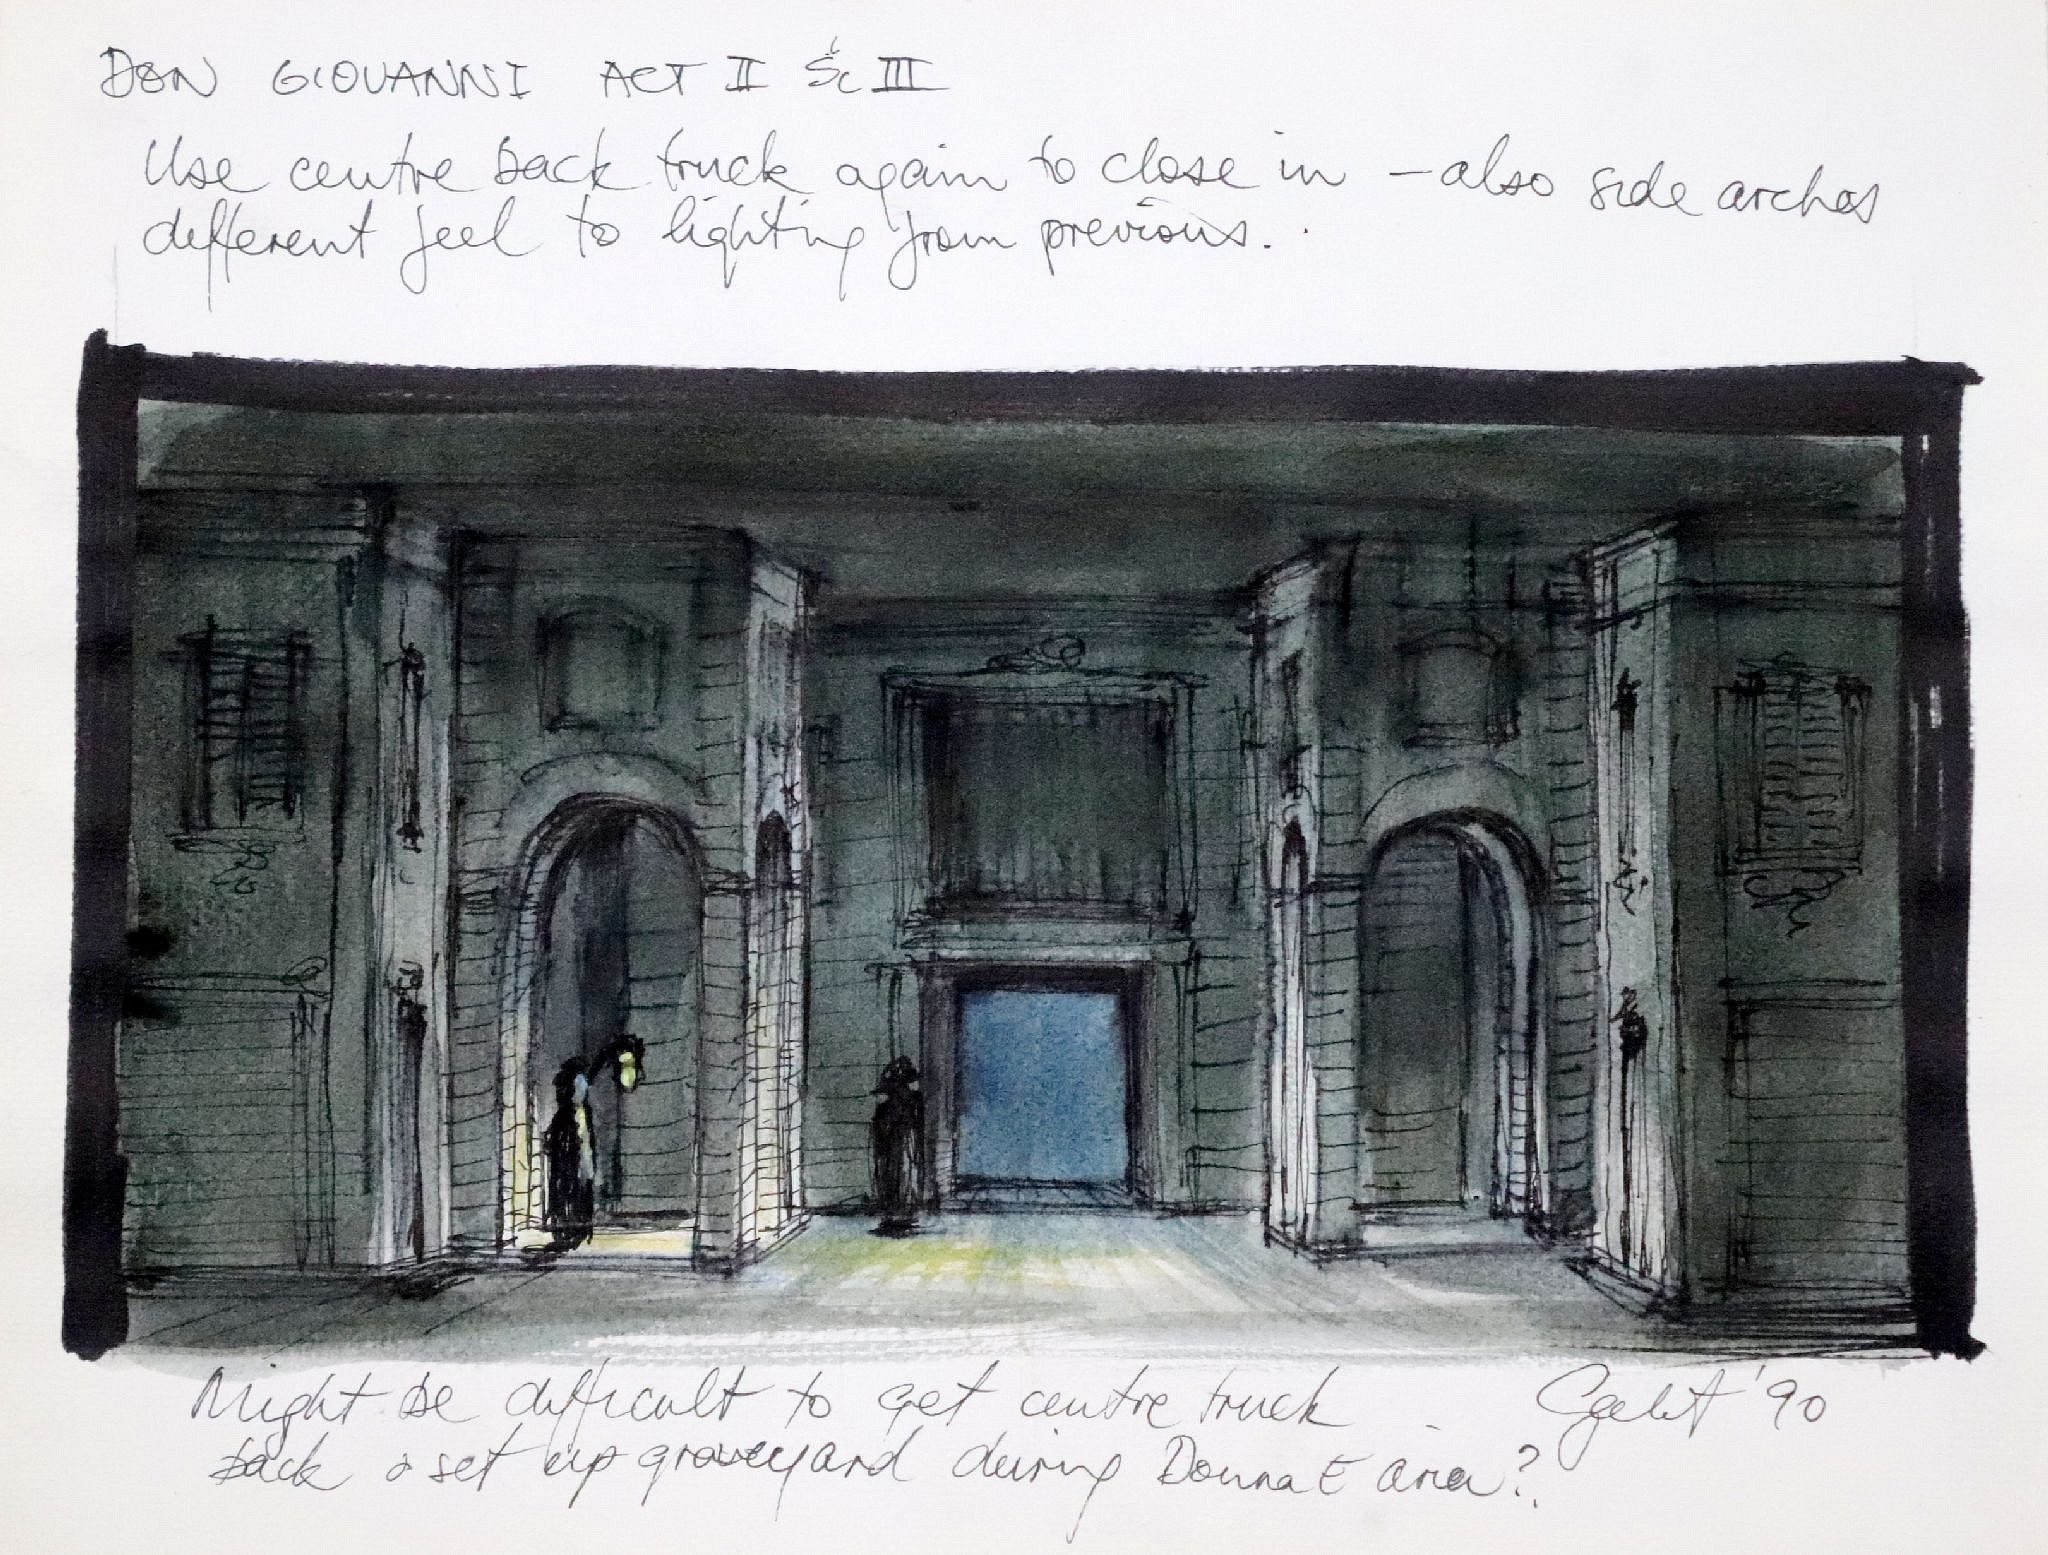 DON GIOVANNI ACT II Sc III
Use centre back truck again to close in – also side arches
different feel to lighting from previous.
Might be difficult to get centre truck
back & set up graveyard during Donna E aria?
'90